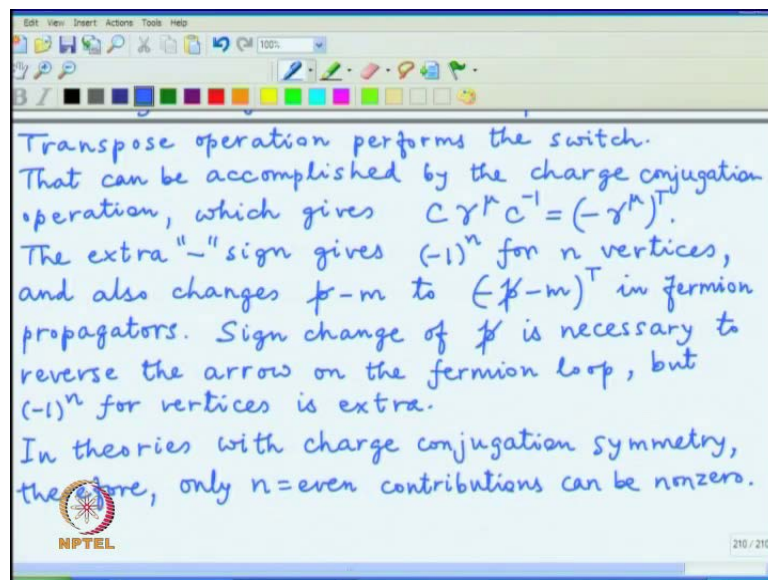 Edit View Insert Actions Tools Help
100%
B I
Transpose operation performs the switch.
That can be accomplished by the charge conjugation
operation, which gives C γ^μ C^{-1} = (-γ^μ)^T.
The extra "-" sign gives (-1)^n for n vertices,
and also changes p̸-m to (-p̸-m)^T in fermion
propagators. Sign change of p̸ is necessary to
reverse the arrow on the fermion loop, but
(-1)^n for vertices is extra.
In theories with charge conjugation symmetry,
therefore, only n=even contributions can be nonzero.
NPTEL
210 / 210